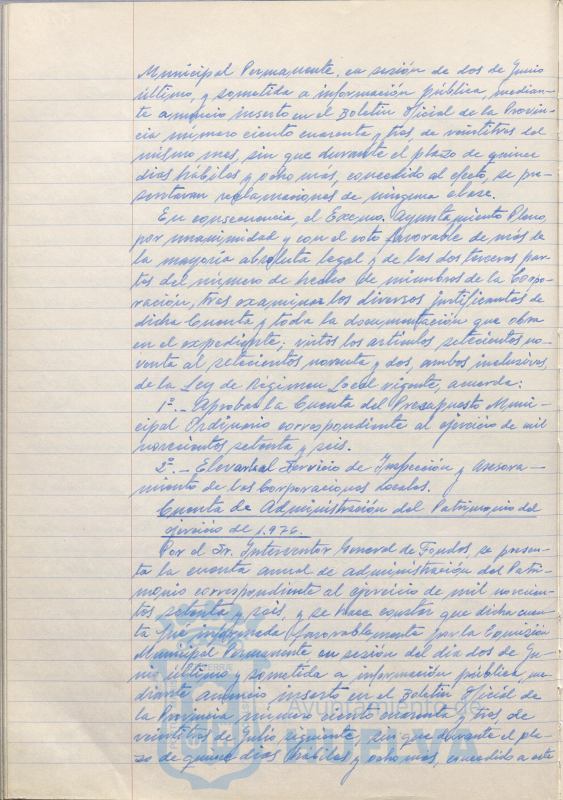 Municipal Permanente, en sesión de dos de Junio
último, y sometida a información pública, median-
te anuncio inserto en el Boletín Oficial de la Provin-
cia número ciento cuarenta y tres de veintitres del
mismo mes, sin que durante el plazo de quince
dias hábiles y ocho mas, concedido al efecto, se pre-
sentaran reclamaciones de ninguna clase.
En consecuencia, el Excmo. Ayuntamiento Pleno,
por unanimidad y con el voto favorable de más de
la mayoria absoluta legal y de las dos terceras par-
tes del número de hecho de miembros de la Corpo-
ración, tras examinar los diversos justificantes de
dicha Cuenta y toda la documentación que obra
en el expediente; vistos los artículos setecientos no-
venta al setecientos noventa y dos, ambos inclusives,
de la Ley de Régimen Local vigente, acuerda:
1º.- Aprobar la Cuenta del Presupuesto Muni-
cipal Ordinario correspondiente al ejercicio de mil
novecientos setenta y seis.
2º.- Elevarla al Servicio de Inspección y Asesora-
miento de las Corporaciones Locales.
Cuenta de Administración del Patrimonio del
ejercicio de 1.976.
Por el Sr. Interventor General de Fondos, se presen-
ta la cuenta anual de administración del Patri-
monio correspondiente al ejercicio de mil novecien-
tos setenta y seis, y se hace constar que dicha cuen-
ta fué informada favorablemente por la Comisión
Municipal Permanente en sesión del dia dos de Ju-
nio último y sometida a información pública, me-
diante anuncio inserto en el Boletín Oficial de
la Provincia número ciento cuarenta y tres, de
veintitres de Julio siguiente, sin que durante el pla-
zo de quince dias hábiles y ocho mas, concedido a este
Ayuntamiento de
HUELVA